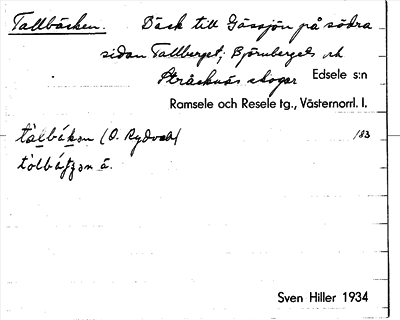 Tallbäcken. Bäck till Gåssjön på södra
sidan Tallberget, Björnbergets och
Stråcknäs skogar Edsele s:n
Ramsele och Resele tg., Västernorrl. l.
tàlbäkən (O. Rydvall) 183
tòlbä́tjən ä.
Sven Hiller 1934